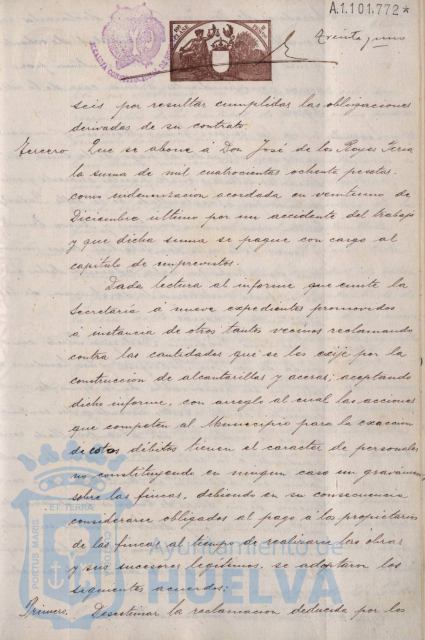 A.1.101.772*
Treinta y uno
seis por resultar cumplidas las obligaciones
derivadas de su contrato.
Tercero. Que se abone á Don José de los Reyes Feria
la suma de mil cuatrocientas ochenta pesetas,
como indemnizacion acordada en veintiuno de
Diciembre último por un accidente del trabajo
y que dicha suma se pague con cargo al
capitulo de imprevistos.
Dada lectura al informe que emite la
Secretaría á nueve expedientes promovidos
á instancia de otros tantos vecinos reclamando
contra las cantidades que se les exije por la
construccion de alcantarillas y aceras; aceptando
dicho informe, con arreglo al cual las acciones
que competen al Municipio para la exaccion
de estos débitos tienen el caracter de personales
no constituyendo en ningun caso un gravamen
sobre las fincas, debiendo en su consecuencia
considerarse obligados al pago á los propietarios
de las fincas al tiempo de realizarse las obras
y sus sucesores legítimos, se adoptaron los
siguientes acuerdos:
Primero. Desestimar la reclamacion deducida por los
PORTUS MARIS
ET TERRÆ
Ayuntamiento de
HUELVA